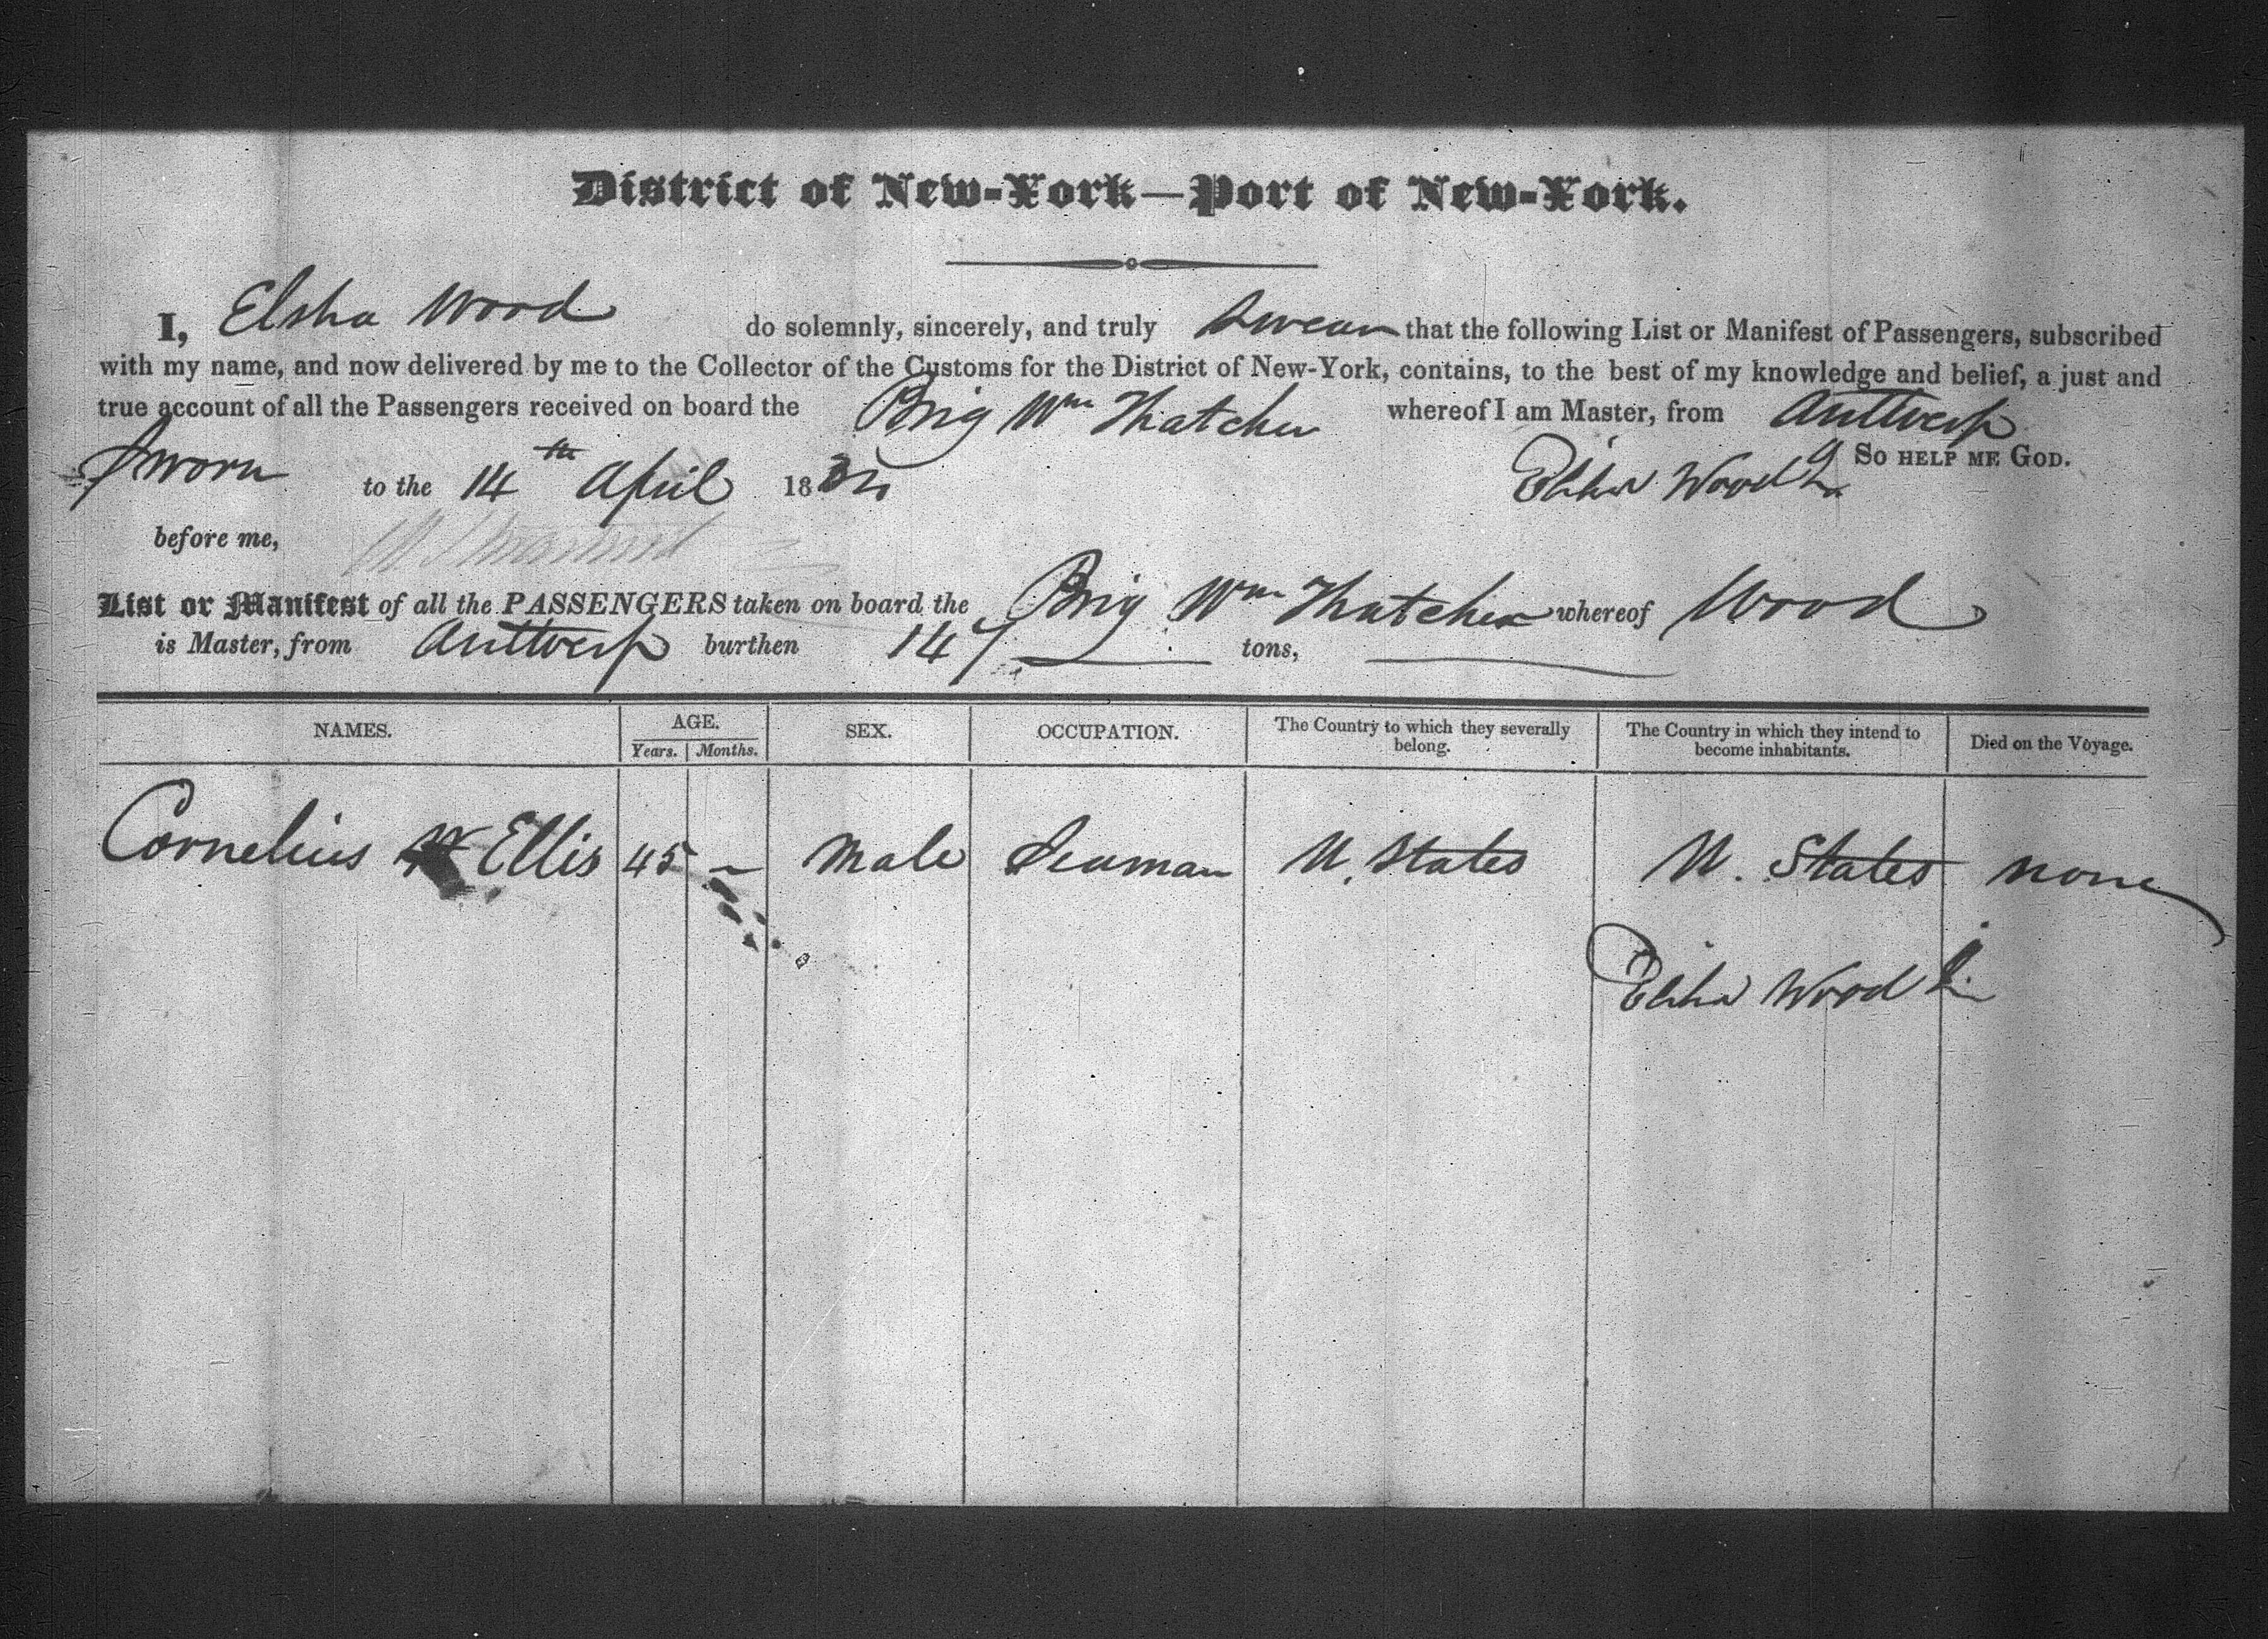 District of New-York—Port of New-York.
I, Elsha Wood do solemnly, sincerely, and truly Swear that the following List or Manifest of Passengers, subscribed
with my name, and now delivered by me to the Collector of the Customs for the District of New-York, contains, to the best of my knowledge and belief, a just and
true account of all the Passengers received on board the Brig Wm Thatcher whereof I am Master, from Anttwerp
So help me God.
Sworn to the 14th April 183 Wood
before me,
List or Manifest of all the PASSENGERS taken on board the Brig Wm Thatcher whereof Wood
is Master, from Anttwerp burthen 147 tons,
NAMES. AGE. SEX. OCCUPATION. The Country to which they severally belong. The Country in which they intend to become inhabitants. Died on the Voyage.
Years. Months.
Cornelius Ellis 45 – Male Seaman U. States U. States none
Wood